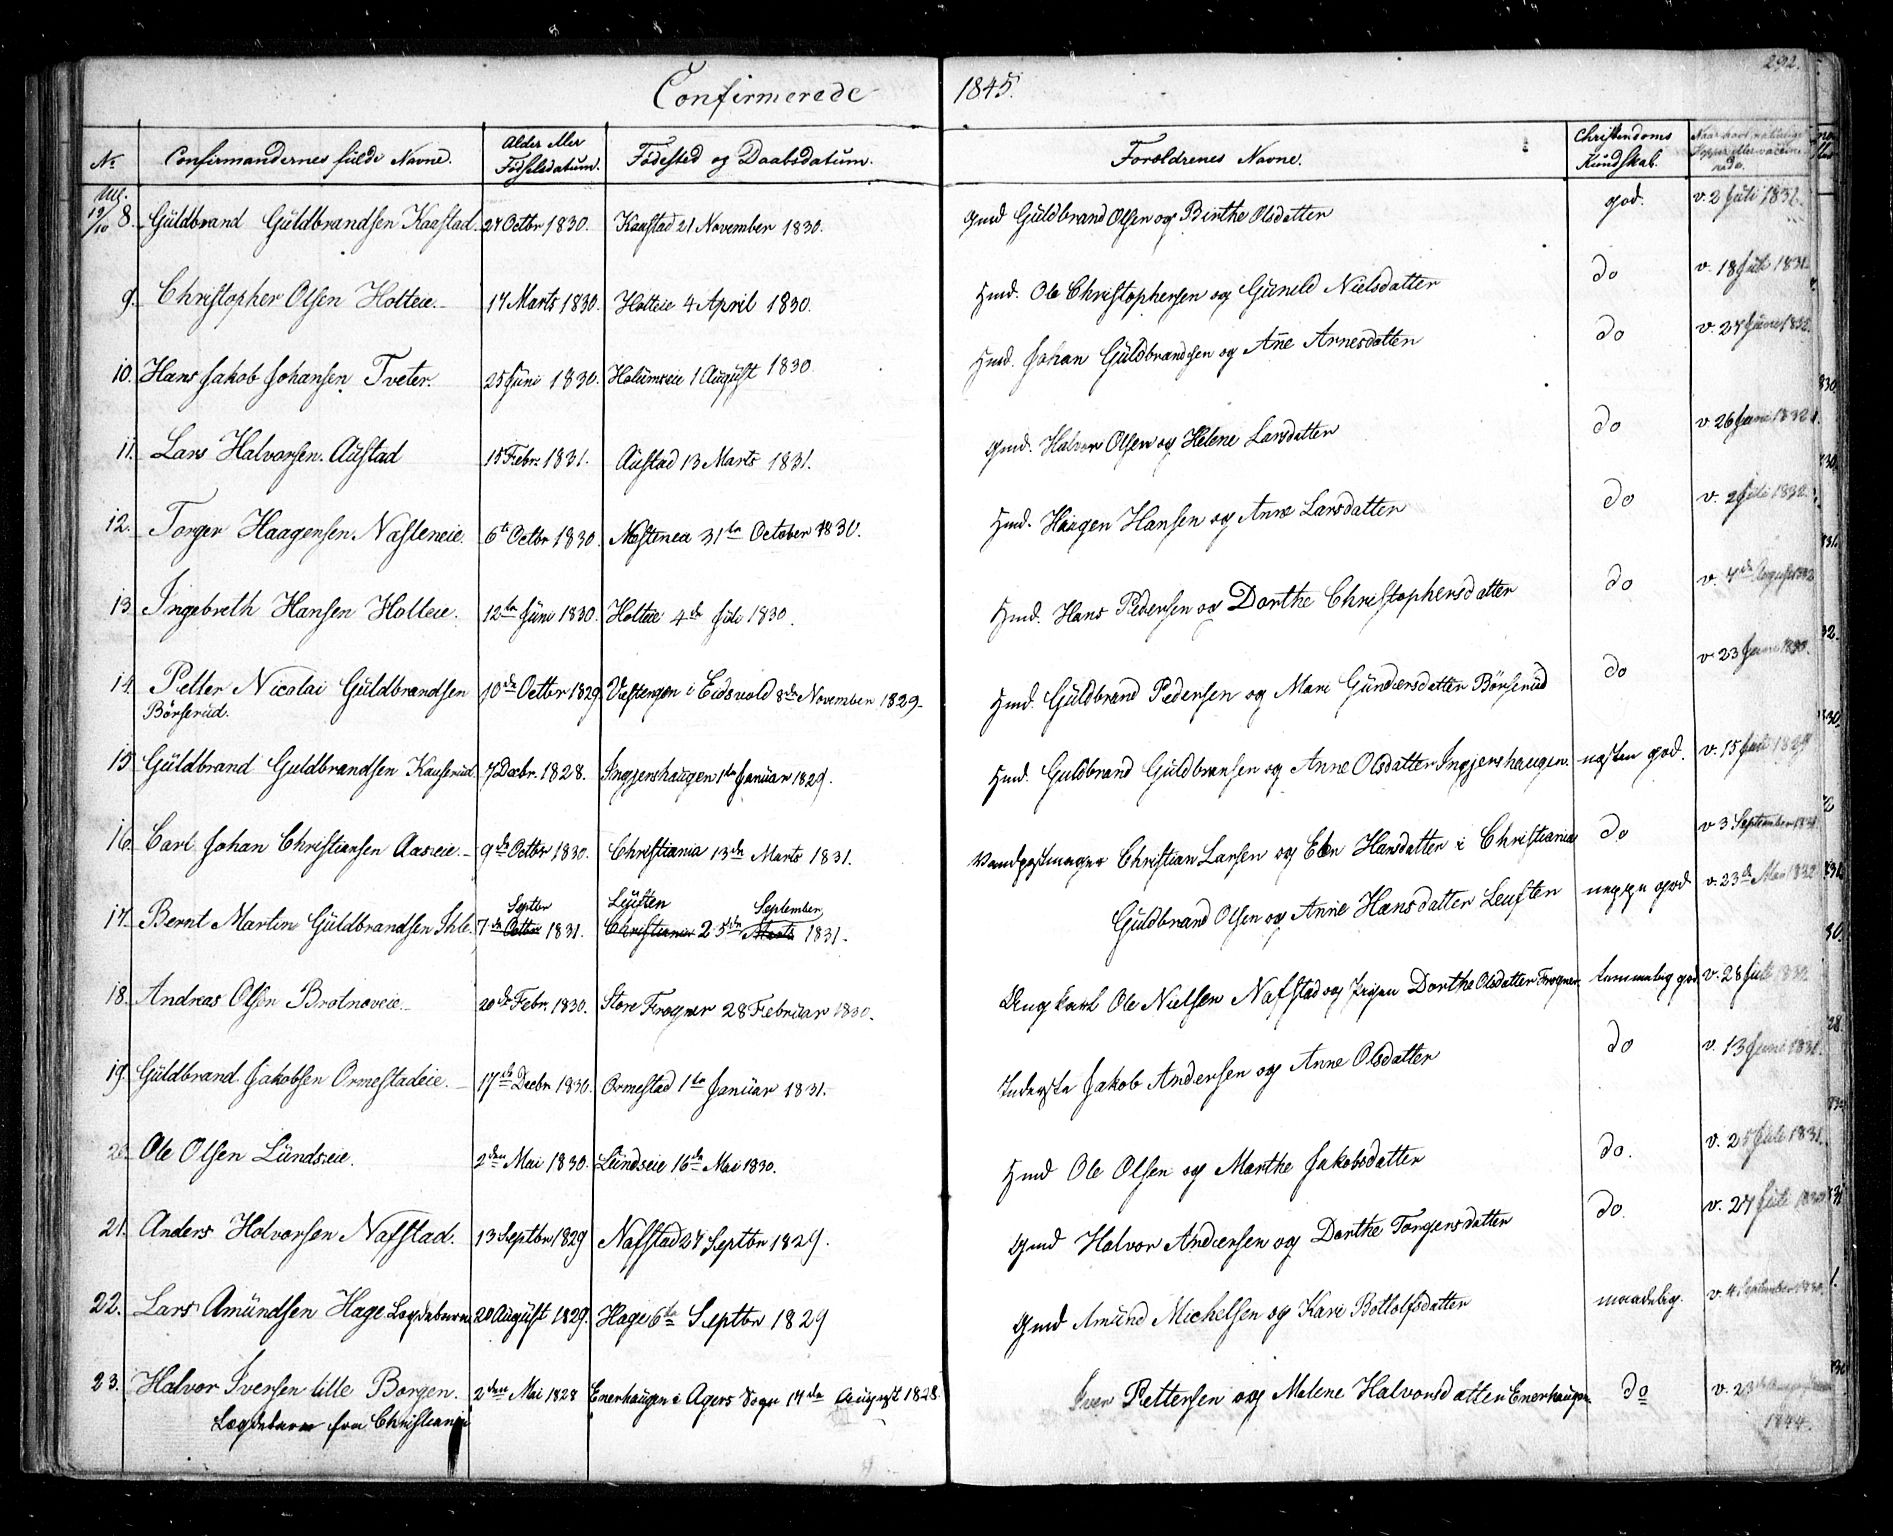 292.
Confirmerede 1845.
No Confirmandernes fulde Navne. Alder eller Fødselsdatum. Fødested og Daabsdatum. Forældrenes Navne. Christendoms Kundskab.
19/10 8. Guldbrand Guldbrandsen Kaastad. 24 Octbr 1830. Kaastad 21 November 1830. Gmd Guldbrand Olsen og Birthe Olsdatter god. v. 2 Juli 1831.
9. Christopher Olsen Holteie. 17 Marts 1830. Holteie 4 April 1830. Hmd. Ole Christophersen og Gunild Nielsdatter do v. 18 Juli 1831.
10. Hans Jakob Johansen Tveter. 25 Juni 1830. Holumseie 1 August 1830 Hmd. Johan Guldbrandsen og Ane Arnesdatter do v. 27 Juni 1832.
11. Lars Halvorsen Austad 15 Febr. 1831. Austad 13 Marts 1831. Gmd. Halvor Olsen og Helene Larsdatter do v 26 Juni 1832
12. Torger Haagensen Næsteneie. 6te Octbr 1830. Næstenea 31te October 1830. Hmd. Haagen Hansen og Anne Larsdatter do v. 2 Juli 1832.
13. Ingebreth Hansen Holteie. 12te Juni 1830. Holteie 4de Juli 1830. Hmd. Hans Pedersen og Dorthe Christophersdatter do v. 7de August
14. Petter Nicolai Guldbrandsen 10de Octbr 1829 i Eidsvold 8de November 1829. Hmd. Guldbrand Pedersen og Mari Gundersdatter Börserud do v. 23 Juni
Börserud.
15. Guldbrand Guldbrandsen Kauserud 7 Decbr. 1828. Ingjershaugen 1te Januar 1829. Hmd. Guldbrand Guldbransen og Anne Olsdatter Ingjershaugen. næsten god. v. 15 Juli 1829
16. Carl Johan Christiansen Aaseie. 9de Octbr 1830. Christiania 13de Marts 1831. Christian Larsen og Elen Hansdatter i Christiania do v 3 September 1831
Septbr Leusten September
17. Bernt Martin Guldbrandsen Ihle. 7de Octbr 1831. Christiania 25de Marts 1831. Guldbrand Olsen og Anne Hansdatter Leusten neppe god v. 23de Mai 1832
18. Andreas Olsen Brotnoveie. 20de Febr. 1830. Store Frogner 28 Februar 1830. Ungkarl Ole Nielsen Nafstad og Pigen Dorthe Olsdatter Frogner. temmelig god v. 28 Juli
19. Guldbrand Jakobsen Ormestadeie. 17de Decbr 1830. Ormestad 1te Januar 1831. Inderste Jakob Andersen og Anne Olsdatter do v. 13 Juni 1831.
20. Ole Olsen Lundseie. 2den Mai 1830. Lundseie 16de Mai 1830. Hmd Ole Olsen og Marthe Jakobsdatter do. v. 25 Juli 1831.
21. Anders Halvorsen Nafstad. 13 Septbr 1829 Nafstad 27 Septbr 1829. Gmd Halvor Andersen og Dorthe Torgersdatter do. v. 27 Juli 1830
22. Lars Amundsen Hage Lægdebarn 20 August 1829. Hage 6te Septbr 1829 Gmd Amund Michelsen og Kari Bottolfsdatter maadelig. v. 4 September 1830.
23. Halvor Iversen lille Borgen. 2den Mai 1828 Enerhaugen i Agers Sogn 17de August 1828. Iver Pettersen og Malene Halvorsdatter Enerhaugen. do v. 23
Lægdebarn fra Christiania 1844.